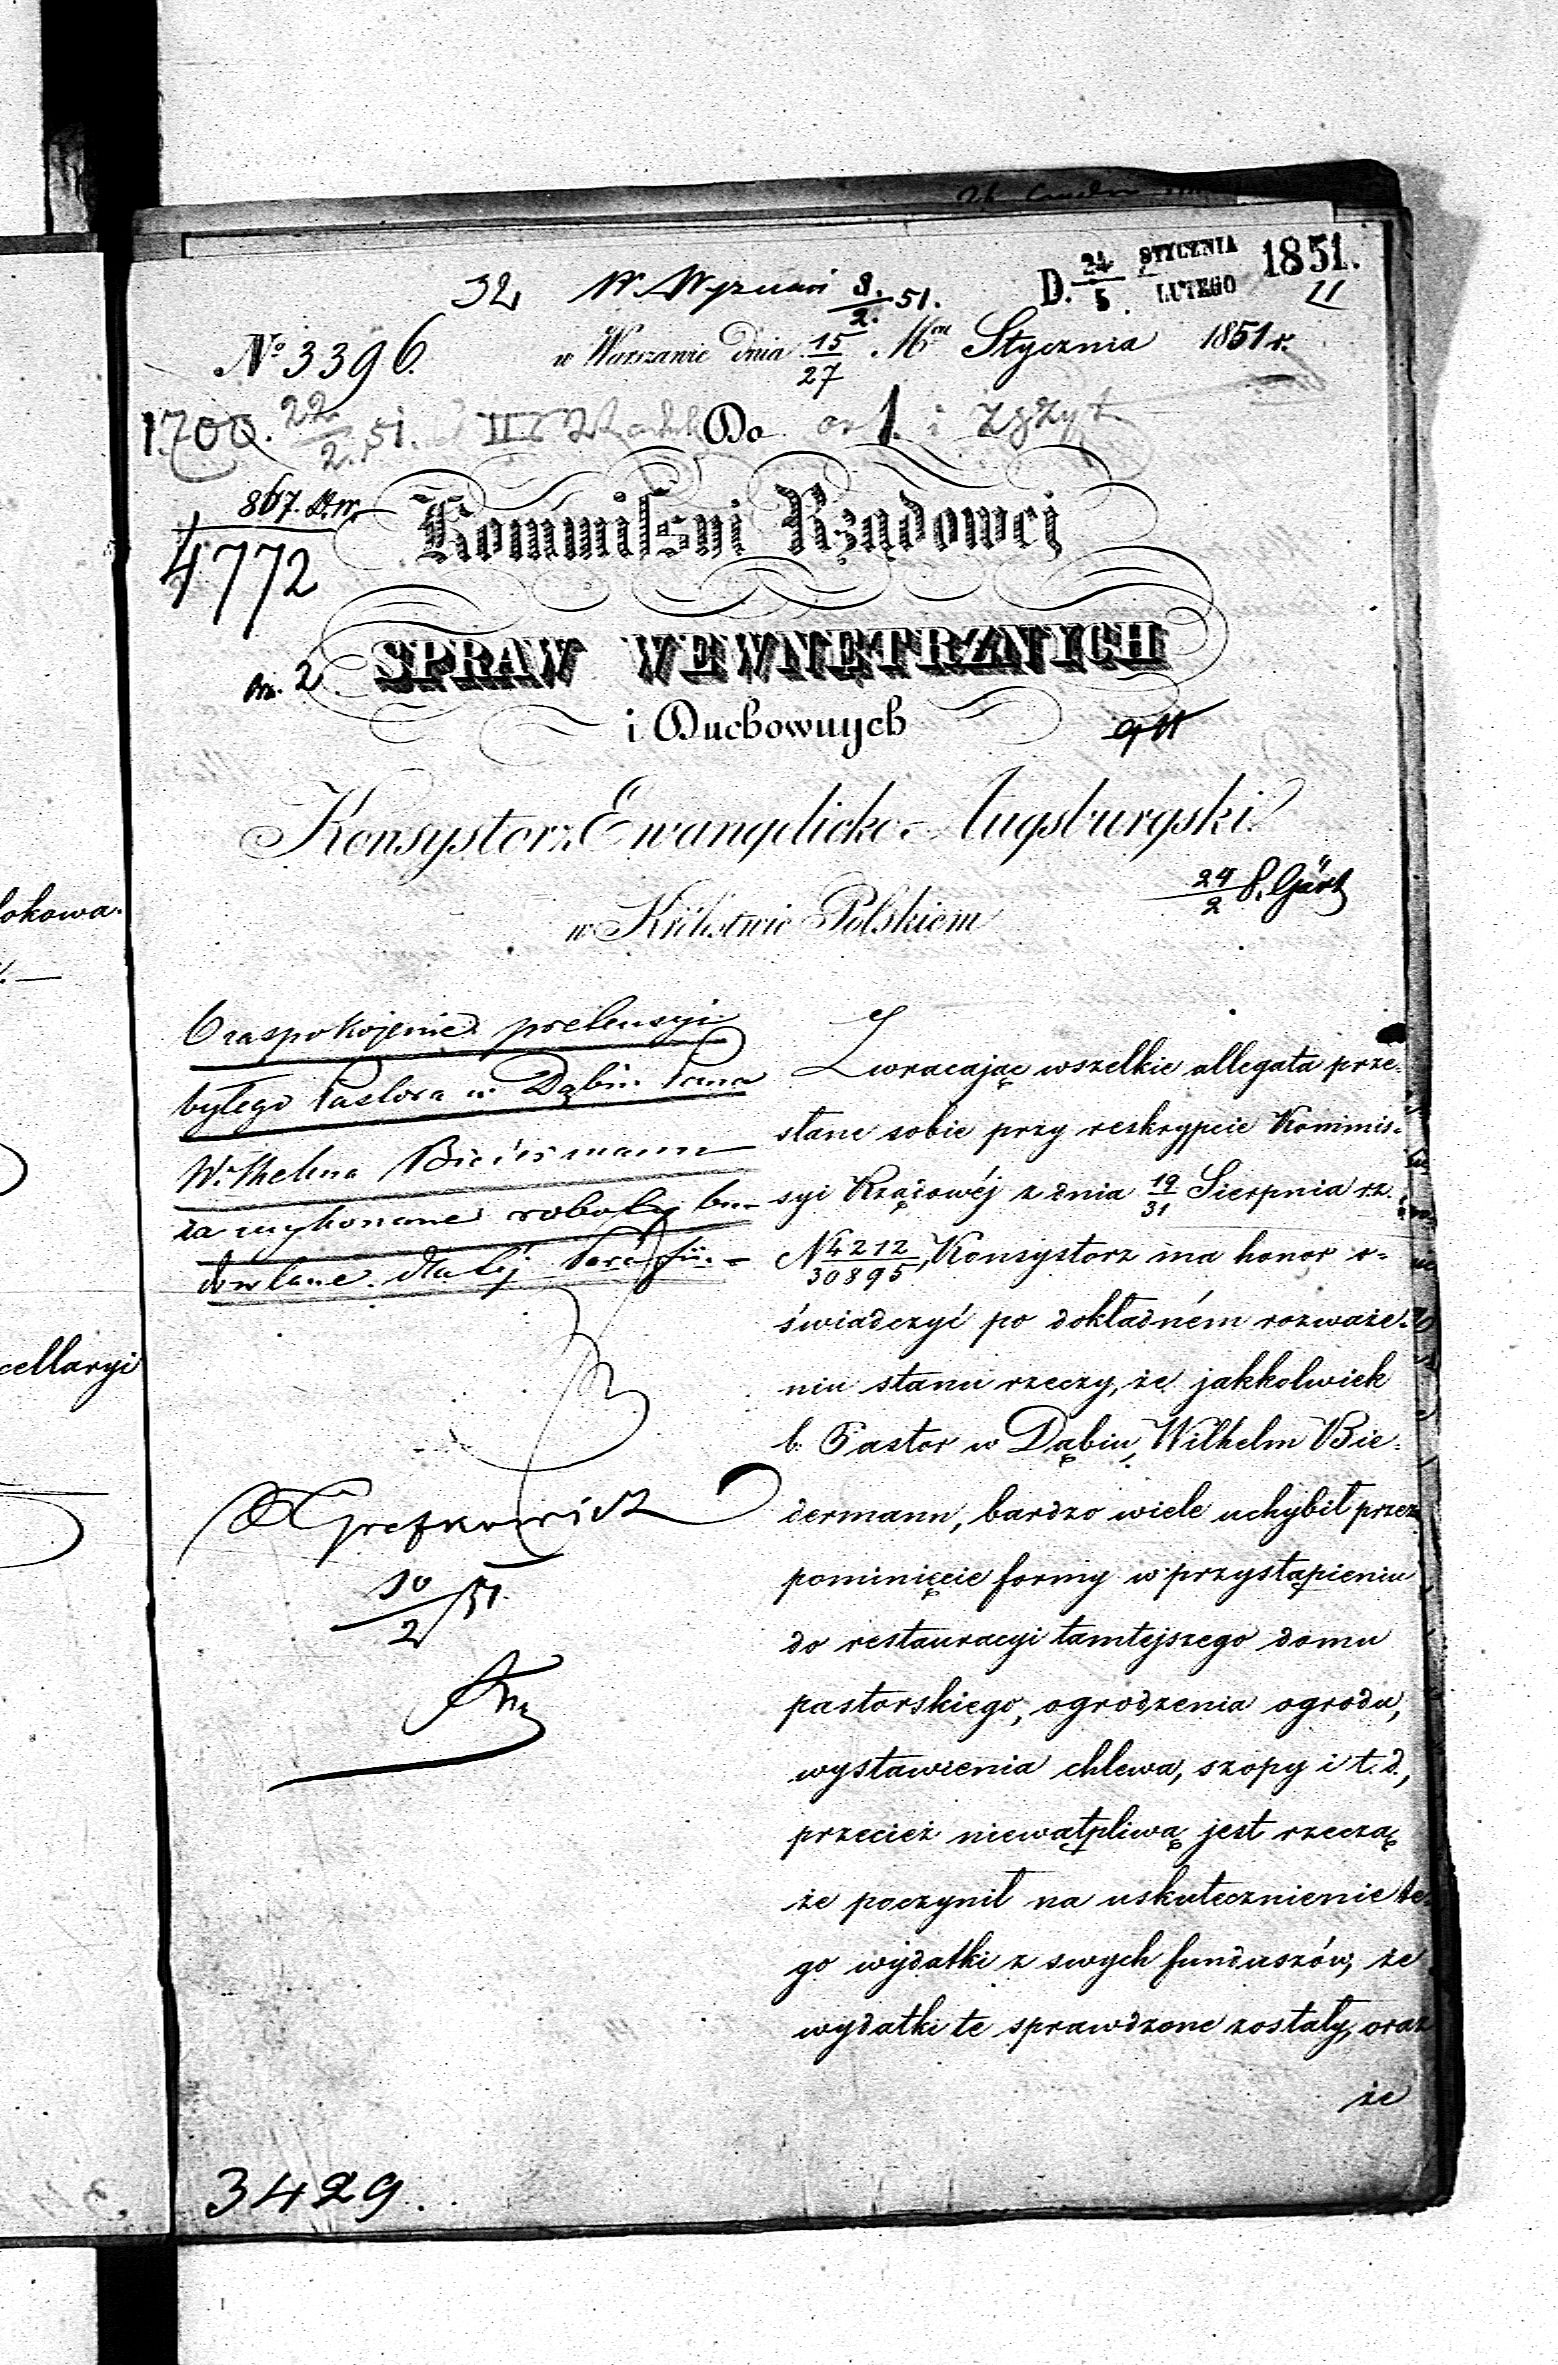 D. 24/5 STYCZNIA/LUTEGO 1851.
11
32 W. Wyznań 8./2. 51.
No 3396. w Warszawie dnia 15/27 Mca Stycznia 1851 r.
1700. 22/2. 51. II Do i zszyt
867.
4772
Kommissyi Rządowej
SPRAW WEWNĘTRZNYCH
2
i Duchownych
Konsystorz Ewangelicko-Augsburgski
24/2
w Królestwie Polskiem
O zaspokojenie pretensyi
byłego Pastora w Dąbiu Pana
Wilhelma Biedermann
za wykonane roboty bu-
dowlane dla tej Parafii. -
10/2 51.
Zwracając wszelkie allegata prze-
słane sobie przy reskrypcie Kommis-
syi Rządowéj z dnia 19/31 Sierpnia r.z.
N 4212/30895, Konsystorz ma honor o-
świadczyć po dokładném rozważe-
niu stanu rzeczy, że jakkolwiek
b. Pastor w Dąbiu, Wilhelm Bie-
dermann, bardzo wiele uchybił przez
pominięcie formy w przystąpieniu
do restauracyi tamtejszego domu
pastorskiego, ogrodzenia ogrodu,
wystawienia chlewa, szopy i t.d.,
przecież niewątpliwą jest rzeczą
że poczynił na uskutecznienie te-
go wydatki z swych funduszów, że
wydatki te sprawdzone zostały, oraz
że
3429.
lokowa.
cellaryi